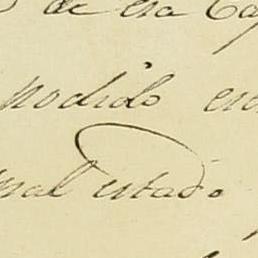 de esa Ca
podido en
mal estado.